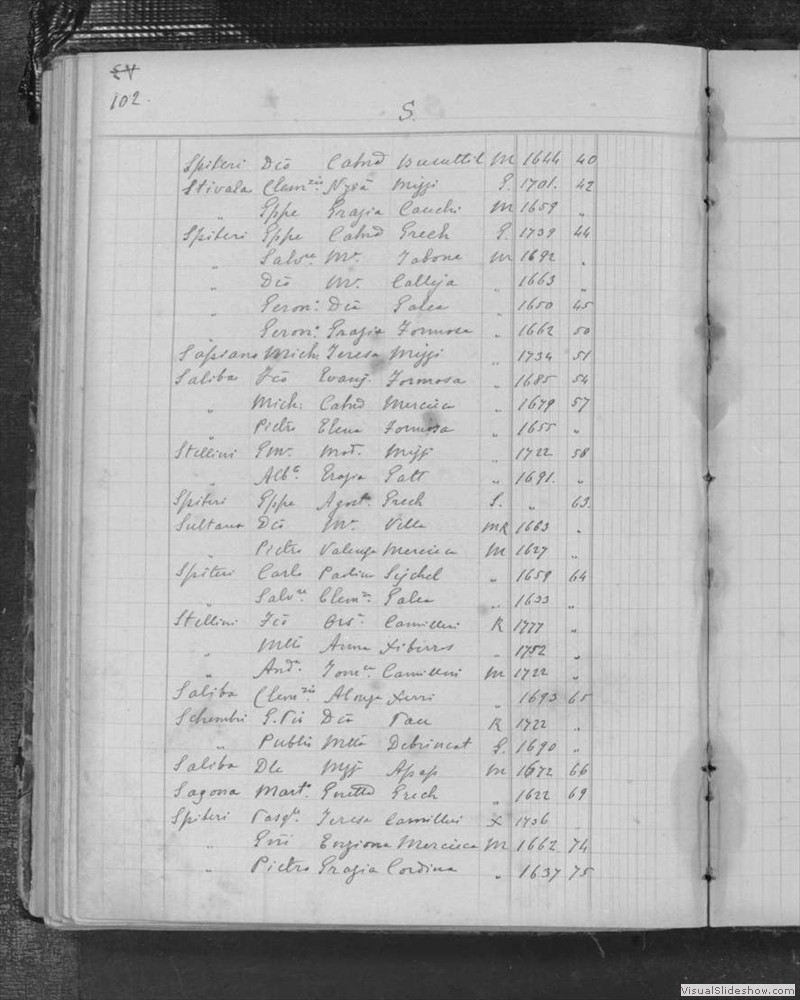 102.
S.
Spiteri Dco Catnd Buuttil M 1644 40
Stivala Clemzio Nzea Mizzi G. 1701. 42
" Gppe Grazia Cauchi M 1659 "
Spiteri Gppe Catnd Grech G. 1739 44
" Salvre Ma. Tabone M 1692 "
" Dco Ma. Calleja " 1663 "
" Geron: Dca Galea " 1650 45
" Geron: Grazia Formosa " 1662 50
Sapiano Mich: Teresa Mizzi " 1734 51
Saliba Fco Evang. Formosa " 1685 54
" Mich: Catnd Mercieca " 1679 57
" Pietro Elena Formosa " 1655 "
Stellini Gm. Mad. Mizzi " 1722 58
" Albo. Grazia Gatt " 1691. "
Spiteri Gppe Agosta. Grech G. " 63.
Sultana Dco Ma. Vella MR 1663 "
" Pietro Valenza Mercieca M 1627 "
Spiteri Carlo Paolina Sejchel " 1659 64
" Salvre Clema. Galea " 1633 "
Stellini Fco Ors. Camilleri R 1777 "
" Mtto Anna Xiberras " 1752 "
" Anda. Tomca Camilleri M 1722 "
Saliba Clemzio. Alonza Xerri " 1693 65
Schembri G. Dca Pace R 1722 "
" Publio Mtta Debrincat G. 1690 "
Saliba Dle Apap M 1672 66
Sagona Marta. Gnetta Grech " 1622 69
Spiteri Pasqle. Teresa Camilleri X 1736
" Gni Enziona Mercieca M 1662 74
" Pietro Grazia Cordina " 1637 75
VisualSlideshow.com